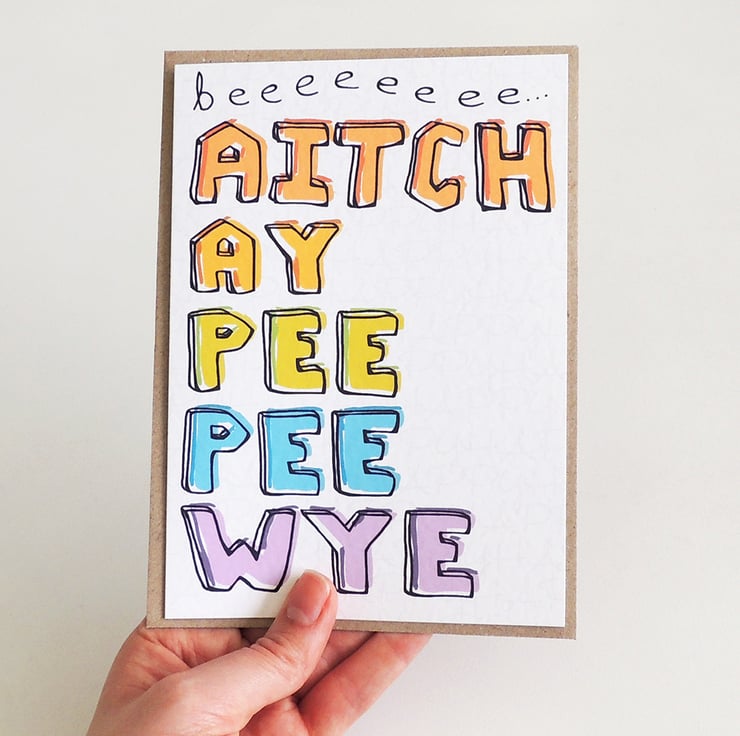 beeeeeeee...
AITCH
AY
PEE
PEE
WYE